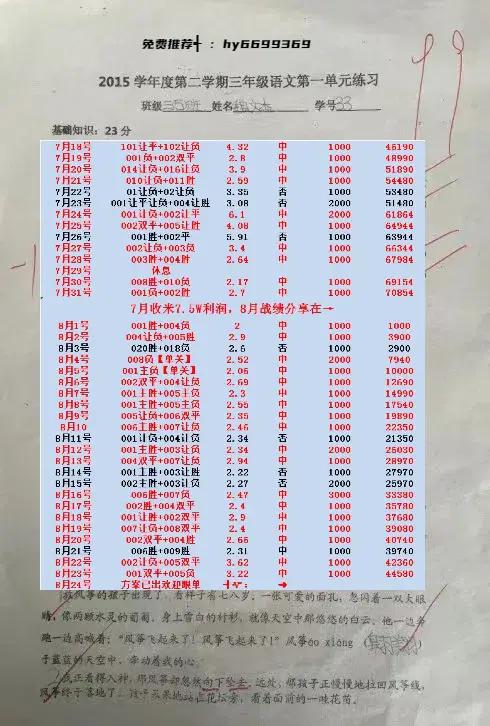 免费推荐┫：hy6699369
2015 学年度第二学期三年级语文第一单元练习
班级 三5班 姓名 学号 33
基础知识：23 分
7月18号 101让平+102让负 4.32 中 1000 46190
7月19号 001负+002双平 2.8 中 1000 48990
7月20号 014让负+016让负 3.9 中 1000 51890
7月21号 010让负+011胜 2.59 中 1000 54480
7月22号 01让负+02让负 3.35 否 1000 53480
7月23号 001让平让负+004让胜 3.08 否 2000 51480
7月24号 001让负+002让平 6.1 中 2000 61864
7月25号 002双平+005让胜 4.08 中 1000 64944
7月26号 001胜+002平 5.91 否 1000 63944
7月27号 002让负+003负 3.4 中 1000 66344
7月28号 003胜+004胜 2.64 中 1000 67984
7月29号 休息
7月30号 008胜+010负 2.17 中 1000 69154
7月31号 001负+002胜 2.7 中 1000 70854
7月收米7.5W利润，8月战绩分享在→
8月1号 001胜+004负 2 中 1000 1000
8月2号 004让负+005胜 2.9 中 1000 3900
8月3号 020胜+018负 2.6 否 1000 2900
8月4号 008负【单关】 2.52 中 2000 7940
8月5号 001主负【单关】 2.06 中 1000 10000
8月6号 002双平+004让负 2.69 中 1000 12690
8月7号 001主胜+005主负 2.3 中 1000 14990
8月8号 001主胜+005主负 2.55 中 1000 17540
8月9号 005让负+006双平 2.35 中 1000 19890
8月10 006主胜+007让负 2.46 中 1000 22350
8月11号 001让负+004让负 2.34 否 1000 21350
8月12号 001主胜+003让负 2.34 中 2000 26030
8月13号 004双平+007让负 2.94 中 1000 28970
8月14号 001主胜+003让胜 2.22 否 1000 27970
8月15号 002主胜+003让负 2.27 否 2000 25970
8月16号 006胜+007负 2.47 中 3000 33380
8月17号 002胜+004双平 2.4 中 1000 35780
8月18号 001让胜+002双平 2.9 中 1000 37680
8月19号 007让负+008双平 2.4 中 1000 39080
8月20号 002双平+004胜 2.66 中 1000 40740
8月21号 006胜+009胜 2.31 中 1000 39740
8月22号 002让负+005双平 3.62 中 1000 42360
8月23号 001双平+005负 3.22 中 1000 44580
8月24号 方案已出欢迎跟单 ┫ ： →
放风筝的孩子出现了，看样子有七八岁，一张可爱的面孔，忽闪着一双大眼
睛，像两颗水灵的葡萄，身上雪白的衬衫，就像天空中那悠悠的白云。他一边奔
跑一边高喊着：“风筝飞起来了！风筝飞起来了！”风筝áo xiáng（翱翔）
于蓝蓝的天空中，牵动着我的心。
我正看得入神，那风筝却忽然向下坠去，远处，那孩子正慢慢地拉回风筝线，
风筝终于落地了。孩子呆呆地站在花坛旁，看着面前的一哇花苗。